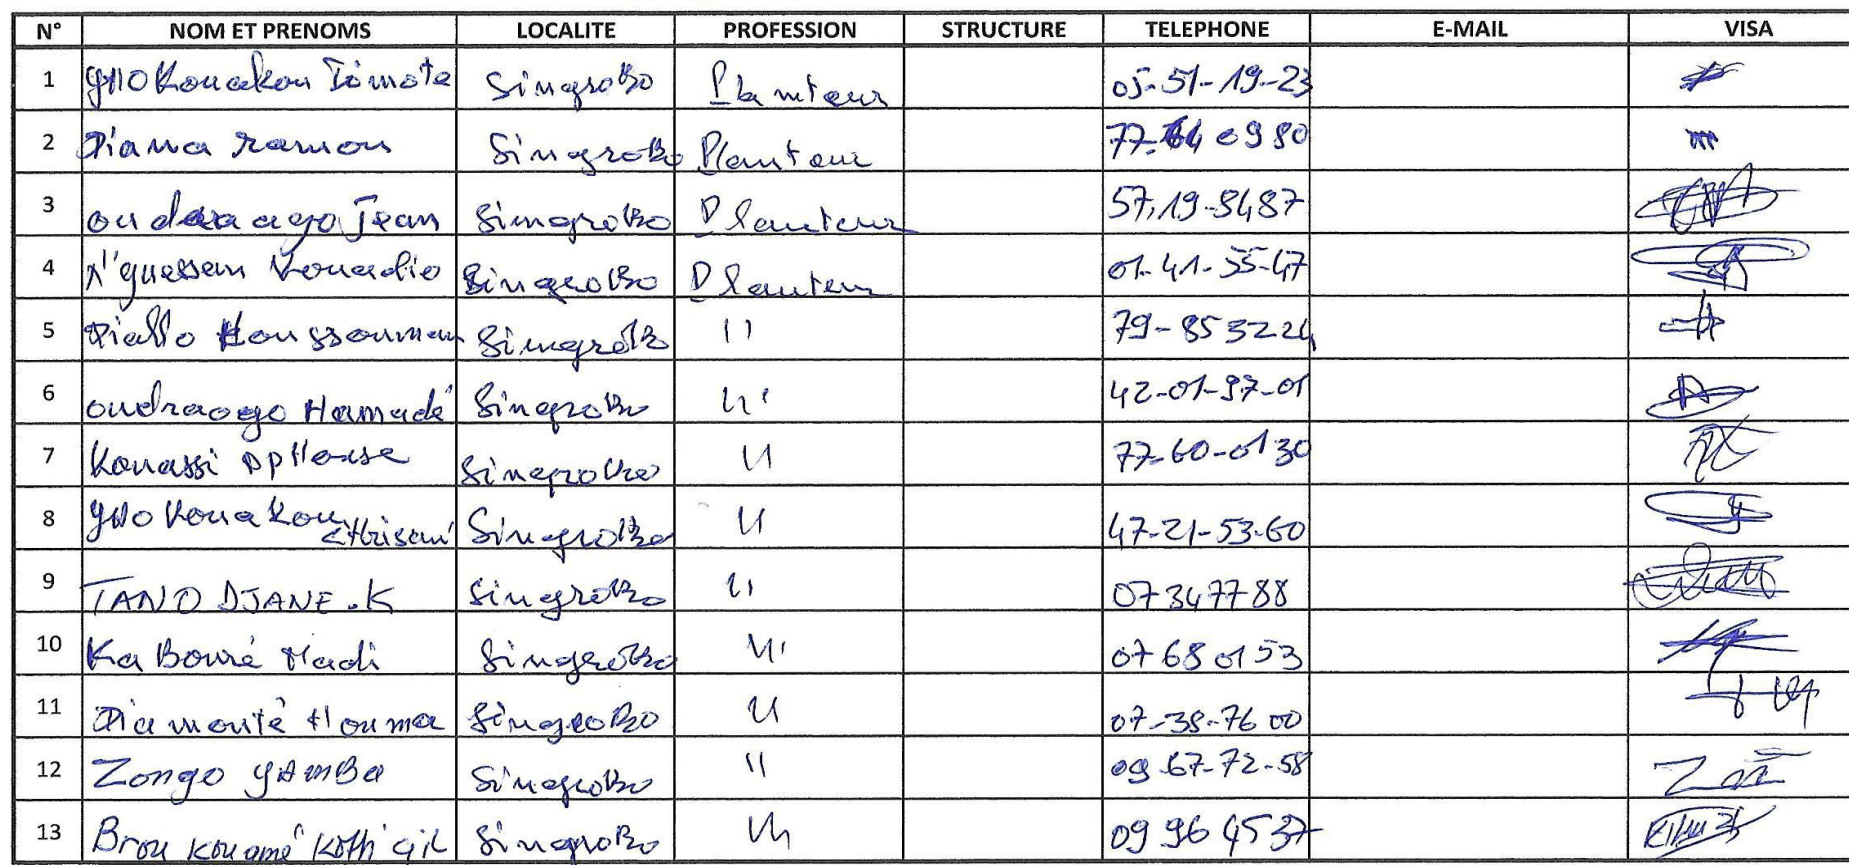 N° NOM ET PRENOMS LOCALITE PROFESSION STRUCTURE TELEPHONE E-MAIL VISA
1 Kouakou Timote Singrobo Planteur 05-51-19-23
2 Diana ramon Singrobo Planteur 77-64 09 80
3 Jean Singrobo Planteur 57.19-8487
4 N'guessan Kouadio Singrobo Planteur 01-41-55-47
5 Diallo Singrobo 11 79-853224
6 oudraogo Hamadé Singrobo 11 42-01-97-01
7 Kouassi Singrobo 11 77-60-0130
8 Kouakou Singrobo 11 47-21-53-60
9 TANO DJANE.K Singrobo 11 07347788
10 Ka Bouré Madi Singrobo 11 07 68 01 53
11 Singrobo 11 07-38-76 00
12 Zongo YAMBA Singrobo 11 09 67-72-58
13 Brou Kouamé Koffi gil Singrobo 09 96 45 37